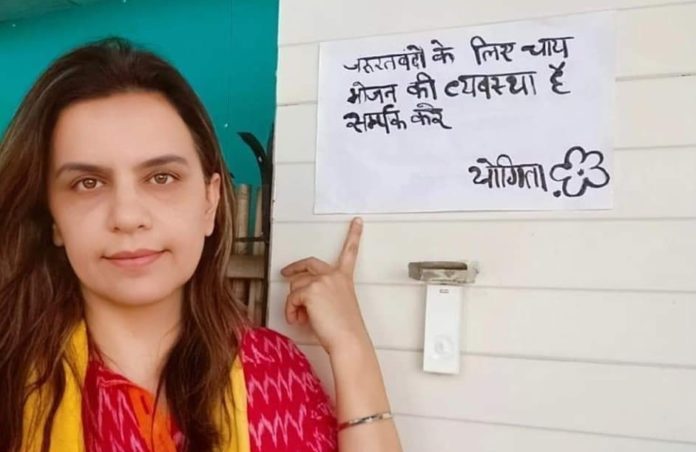 जरूरतवंदो के लिए चाय
भोजन की व्यवस्था है
सर्म्पक करे
योगिता